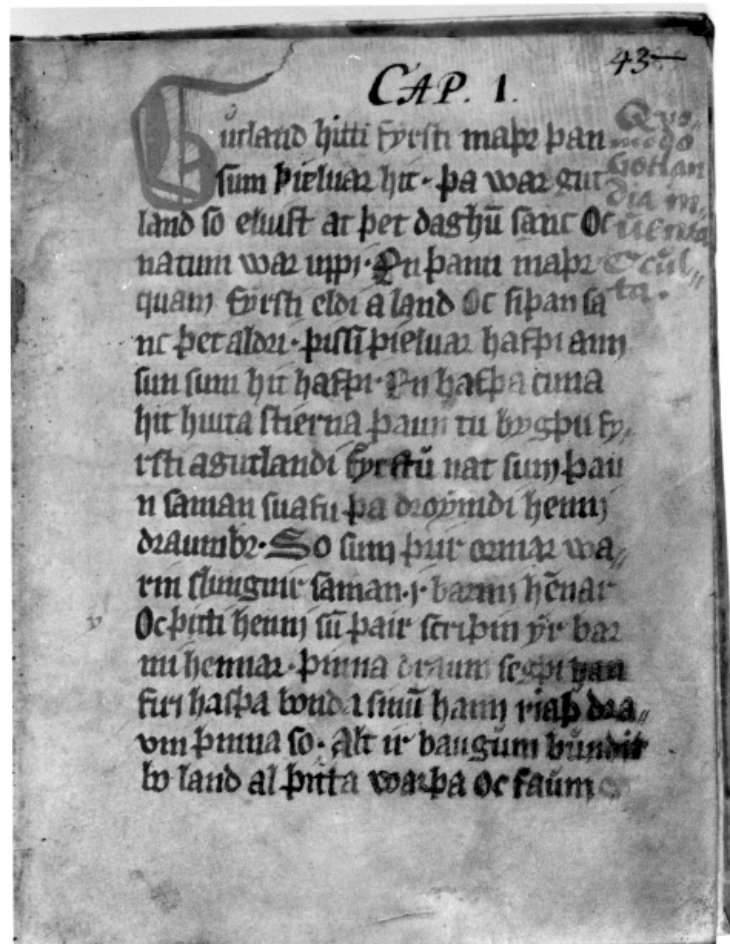 CAP. I.
43
Gutland hitti fyrsti maþr þan
sum þieluar hit. þa war gut
land so eluist at þet daghū sanc Oc
natum war uppi. En þann maþr
quam fyrsti eldi a land Oc siþan sa
nc þet aldri. þissi þieluar hafþi ann
sun sum hit hafþi. En hafþa cuna
hit huita stierna þaun tu bygþu fy„
rsti a gutlandi fyrstū nat sum þau
n saman suafu þa droymdi henni
draumbr. So sum þrir ormar wa„
rin slungnir saman. i barmi hēnar
Oc þitti henni sū þair scriþin yr bar
mi hennar. þinna draum segþi han
firi hafþa bonda sinū hann riaþ dra„
vm þinna so. Alt ir baugum bundit
bo land al þitta warþa oc faum
Quo„
modo
Gotlan
dia in„
uenta
Ocul„
ta.